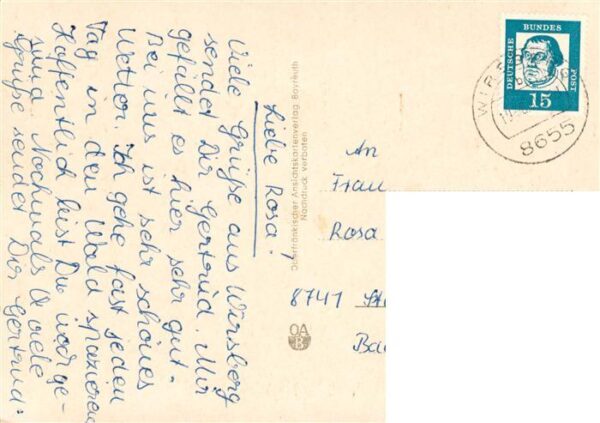 Liebe Rosa!
Viele Grüße aus Wirsberg
sendet Dir Gertrud. Mir
gefällt es hier sehr gut.
Bei uns ist sehr schönes
Wetter. Ich gehe fast jeden
Tag in den Wald spazieren
Hoffentlich bist Du
Nochmals Viele
Grüße sendet Dir Gertrud.
Oberfränkischer Ansichtskartenverlag Bayreuth
Nachdruck verboten
OA
B
DEUTSCHE
BUNDES
POST
15
8655
An
Frau
Rosa
8741